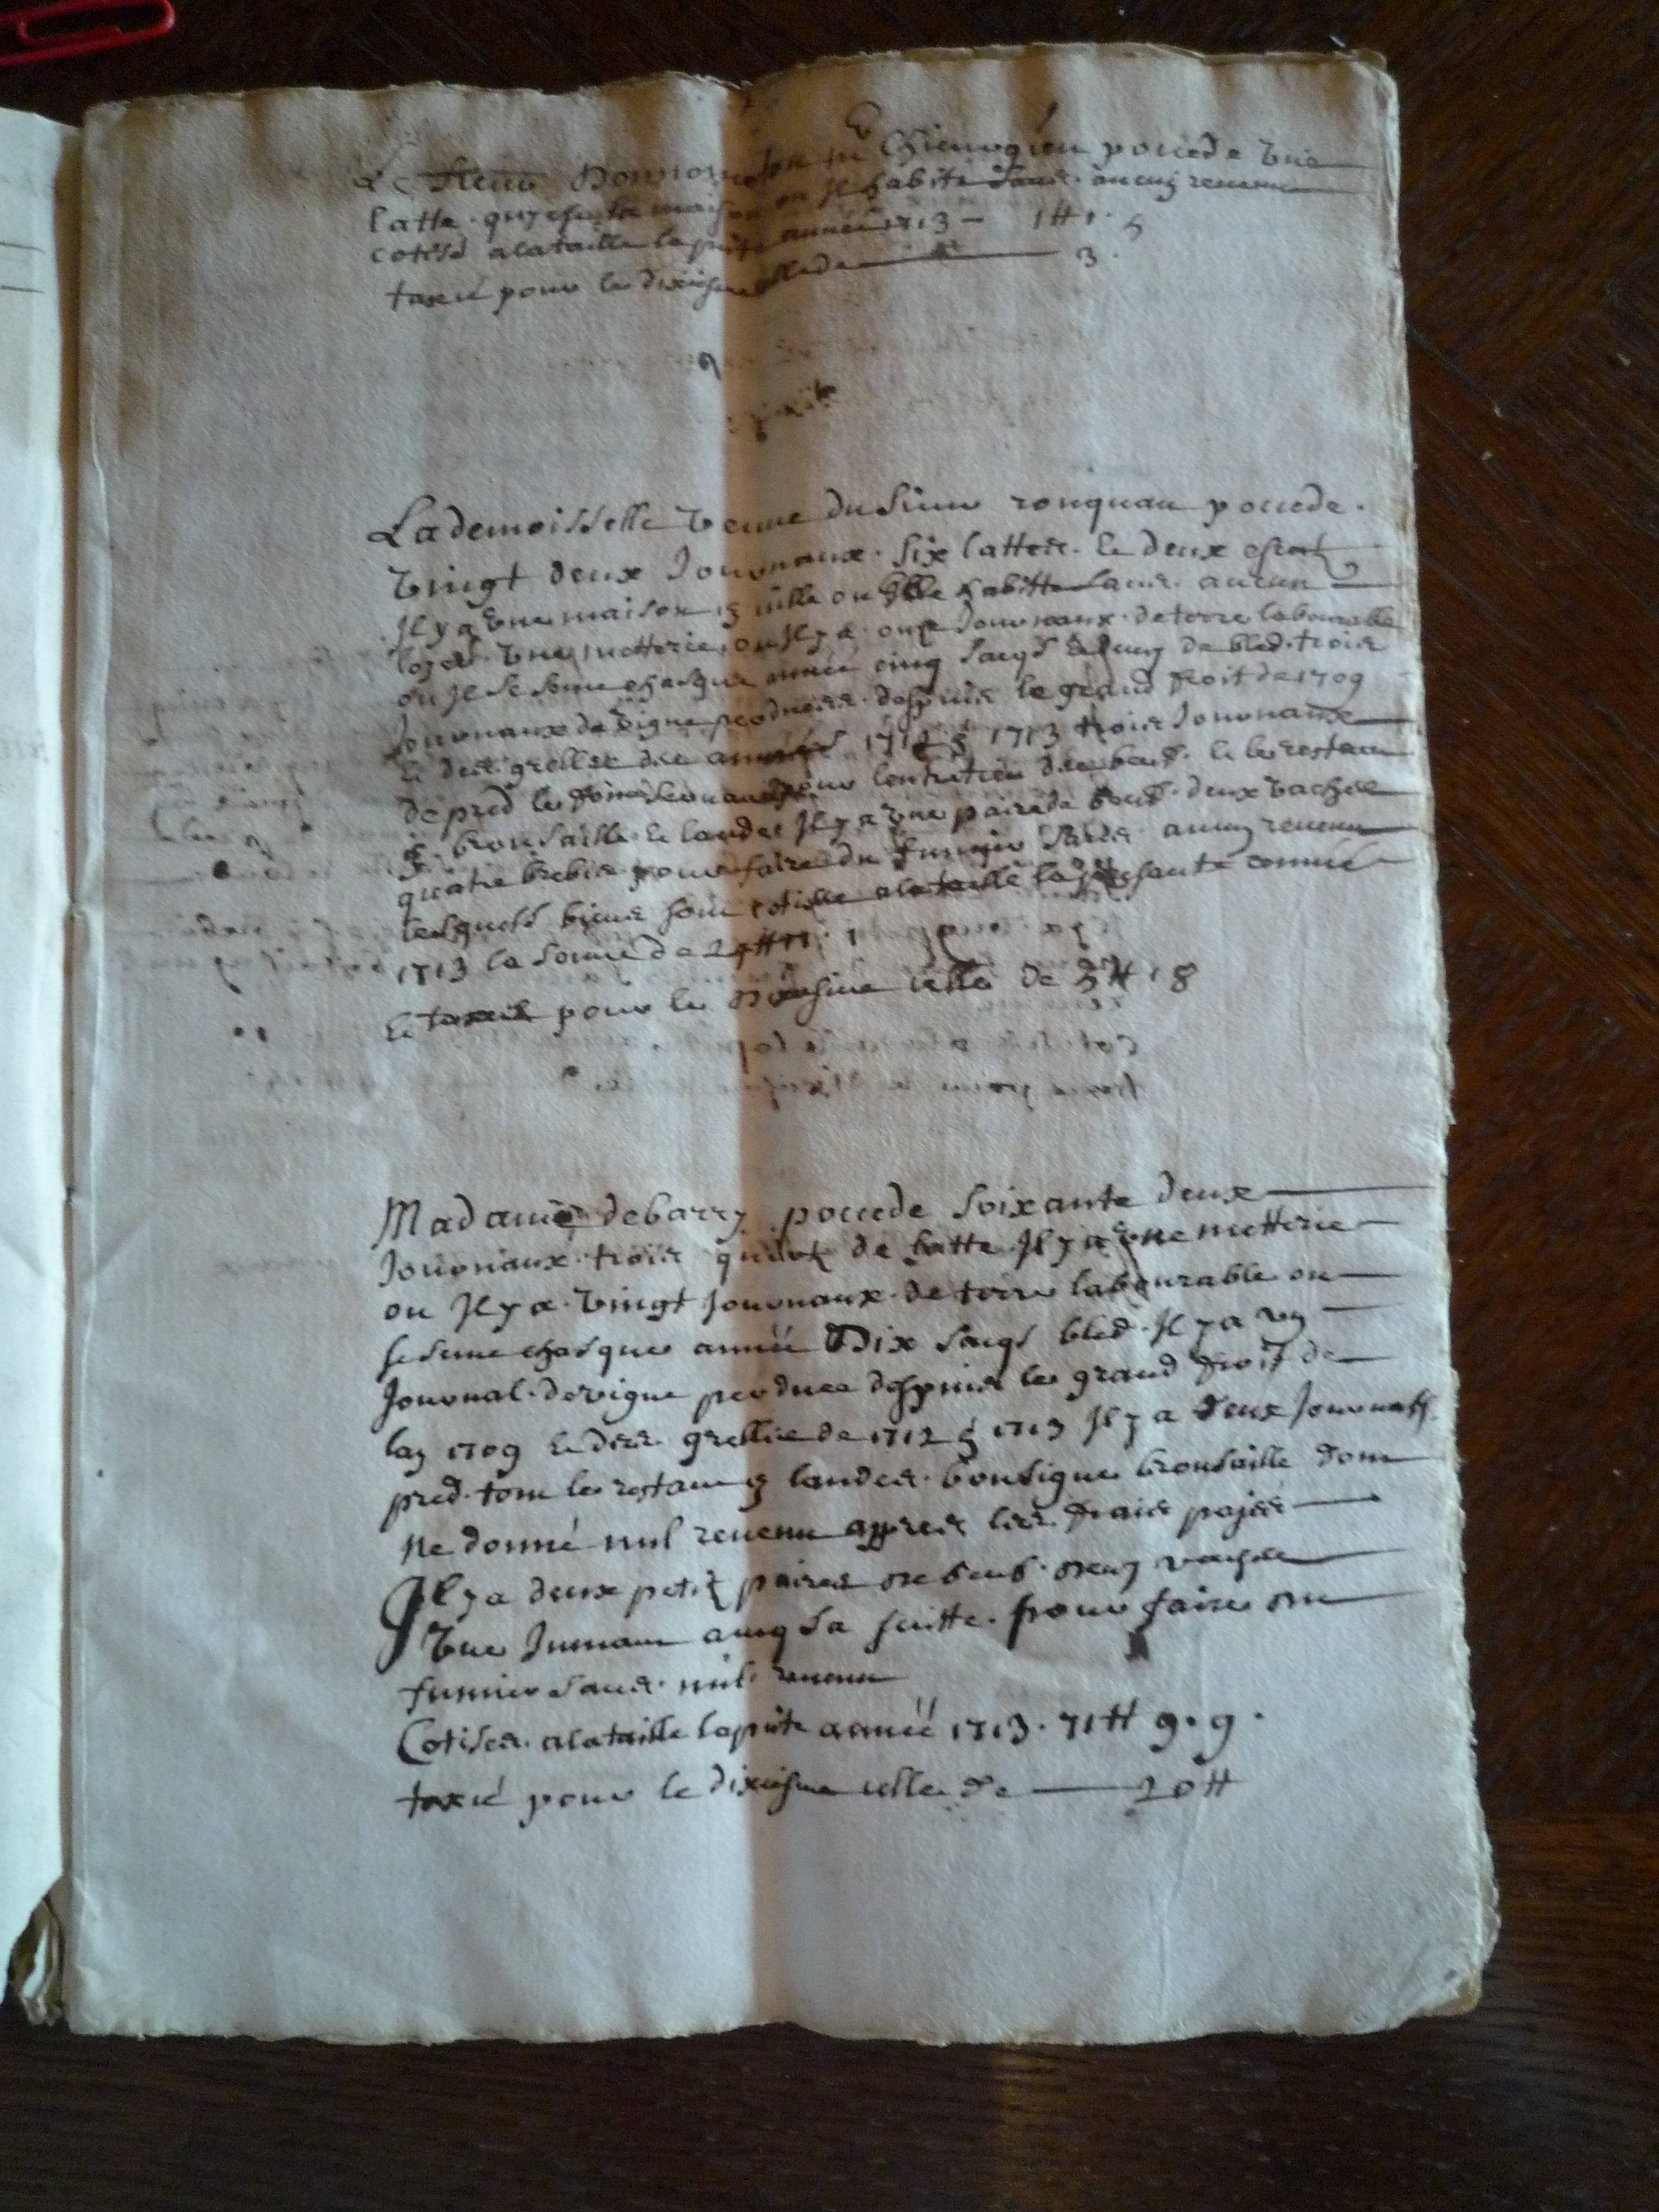 Le sieur chirurgien pocede une
latte quy est la maison ou Il habite sans aucun revenu
cotisé a la taille la pnte année 1713 - 1 tt 1 s
taxé pour le dixiesme celle de 3
La demoisselle veuve du sieur ronquau pocede
vingt deux Journaux six lattes et deux escat
Il y a une maison en ville ou Elle habitte sans aucun
loyer une metterie ou Il y a onze Journaux de terre labourable
ou Il se seme chasque année cinq sacqs de bled trois
Journaux de vigne perdues despuis le grand froit de 1709
et des gresles des années 1712 & 1713 trois Journaux
de pred le pour lentretien des beufs et le restant
en brousaille et landes Il y a une paire de beufs deux vaches
quatre brebis pour faire du fumier sans aucun revenu
lesquels biens sont cotisse a la taille la presante année
1713 la somme de 29 tt 11 1
et taxés pour le dixiesme celle de 3 tt 18
Madame debarry pocede soixante deux
Journaux trois quart de latte Il y a une metterie
ou Il y a vingt Journaux de terre labourable ou
se seme chasque année Dix sacqs bled Il y a un
Journal de vigne perdues despuis le grand froit de
lan 1709 et des gresllies de 1712 & 1713 Il y a deux Journaux
pred tout le restant en landes bousigue brousaille dont
ne donné nul revenu appres les frais payés
Il y a deux petit paires de beufs deux vaches
une Jument avecq sa suitte pour faire du
fumier sans nul revenu
Cotisée a la taille la pnte année 1713 . 71 tt 9 . 9 .
taxé pour le dixiesme celle de 20 tt